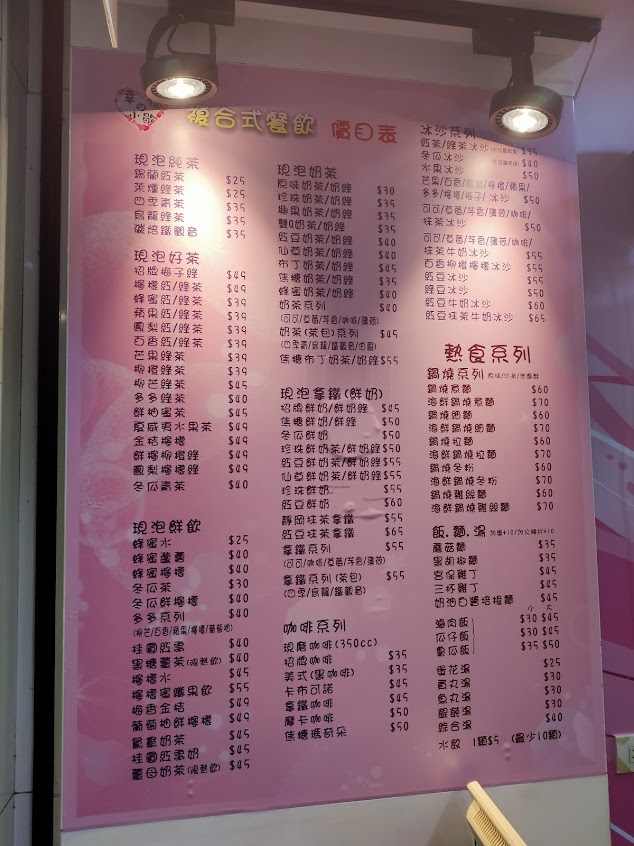 幸の
小歇
複合式餐飲 價目表
現泡純茶
錫蘭紅茶 $25
茉燻綠茶 $25
四季青茶 $35
烏龍綠茶 $35
碳焙鐵觀音 $35
現泡好茶
招牌梅子綠 $49
檸檬紅/綠茶 $49
蜂蜜紅/綠茶 $39
蘋果紅/綠茶 $39
鳳梨紅/綠茶 $39
百香紅/綠茶 $39
芒果綠茶 $39
柳橙綠茶 $39
柳芒綠茶 $45
多多綠茶 $40
鮮柚蜜茶 $45
夏威夷水果茶 $49
金桔檸檬 $49
鮮檸柳橙綠 $49
鳳梨檸檬綠 $49
冬瓜青茶 $40
現泡鮮飲
蜂蜜水 $25
蜂蜜蘆薈 $40
蜂蜜檸檬 $40
冬瓜茶 $30
冬瓜鮮檸檬 $40
多多系列 $40
(柳芒/百香/蘋果/檸檬/葡萄柚)
桂圓紅棗 $40
黑糖薑茶(限熱飲) $40
檸檬水 $45
檸檬蜜鐵果飲 $55
梅香金桔 $49
葡萄柚鮮檸檬 $49
鴛鴦奶茶 $45
桂圓紅棗奶 $45
薑母奶茶(限熱飲) $45
現泡奶茶
原味奶茶/奶綠 $30
珍珠奶茶/奶綠 $35
椰果奶茶/奶綠 $35
雙Q奶茶/奶綠 $35
紅豆奶茶/奶綠 $40
仙草奶茶/奶綠 $40
布丁奶茶/奶綠 $45
焦糖奶茶/奶綠 $35
蜂蜜奶茶/奶綠 $40
奶茶系列 $40
(可可/草莓/芋香/咖啡/薄荷)
奶茶(茶包)系列 $45
(四季青/烏龍/鐵觀音/伯爵)
焦糖布丁奶茶/奶綠 $55
現泡拿鐵(鮮奶)
招牌鮮奶/鮮奶綠 $45
焦糖鮮奶/鮮奶綠 $50
冬瓜鮮奶 $50
珍珠鮮奶茶/鮮奶綠 $50
紅豆鮮奶茶/鮮奶綠 $55
仙草鮮奶茶/鮮奶綠 $55
珍珠鮮奶 $55
紅豆鮮奶 $60
靜岡抹茶拿鐵 $55
紅豆抹茶拿鐵 $65
拿鐵系列 $55
(可可/咖啡/草莓/芋香/薄荷)
拿鐵系列(茶包) $55
(四季/烏龍/鐵觀音)
咖啡系列
現磨咖啡(350cc)
招牌咖啡 $35
美式(黑咖啡) $35
卡布可諾 $45
拿鐵咖啡 $45
摩卡咖啡 $50
焦糖瑪奇朵 $50
冰沙系列
紅茶/綠茶冰沙 $35
冬瓜冰沙 $40
水果冰沙 $50
芒果/百香/鳳梨/柳橙/蘋果/
多多/檸檬/梅子/冰沙 $50
可可/草莓/芋香/薄荷/咖啡/
抹茶冰沙 $50
可可/草莓/芋香/薄荷/咖啡/
抹茶牛奶冰沙 $55
百香柳橙檸檬冰沙 $55
紅豆冰沙 $55
綠豆冰沙 $50
紅豆牛奶冰沙 $60
紅豆抹茶牛奶冰沙 $65
熱食系列
鍋燒系列
鍋燒意麵 $60
海鮮鍋燒意麵 $70
鍋燒烏麵 $60
海鮮鍋燒烏麵 $70
鍋燒拉麵 $60
海鮮鍋燒拉麵 $70
鍋燒冬粉 $60
海鮮鍋燒冬粉 $70
鍋燒雞絲麵 $60
海鮮鍋燒雞絲麵 $70
飯.麵.湯
蘑菇麵 $35
黑胡椒麵 $35
宮保雞丁 $45
三杯雞丁 $45
奶油白醬培根麵 $45
小 大
滷肉飯 $30 $45
瓜仔飯 $30 $45
魯瓜飯 $35 $50
蛋花湯 $25
貢丸湯 $30
魚丸湯 $30
餛飩湯 $30
綜合湯 $40
水餃 1顆$5 (最少10顆)